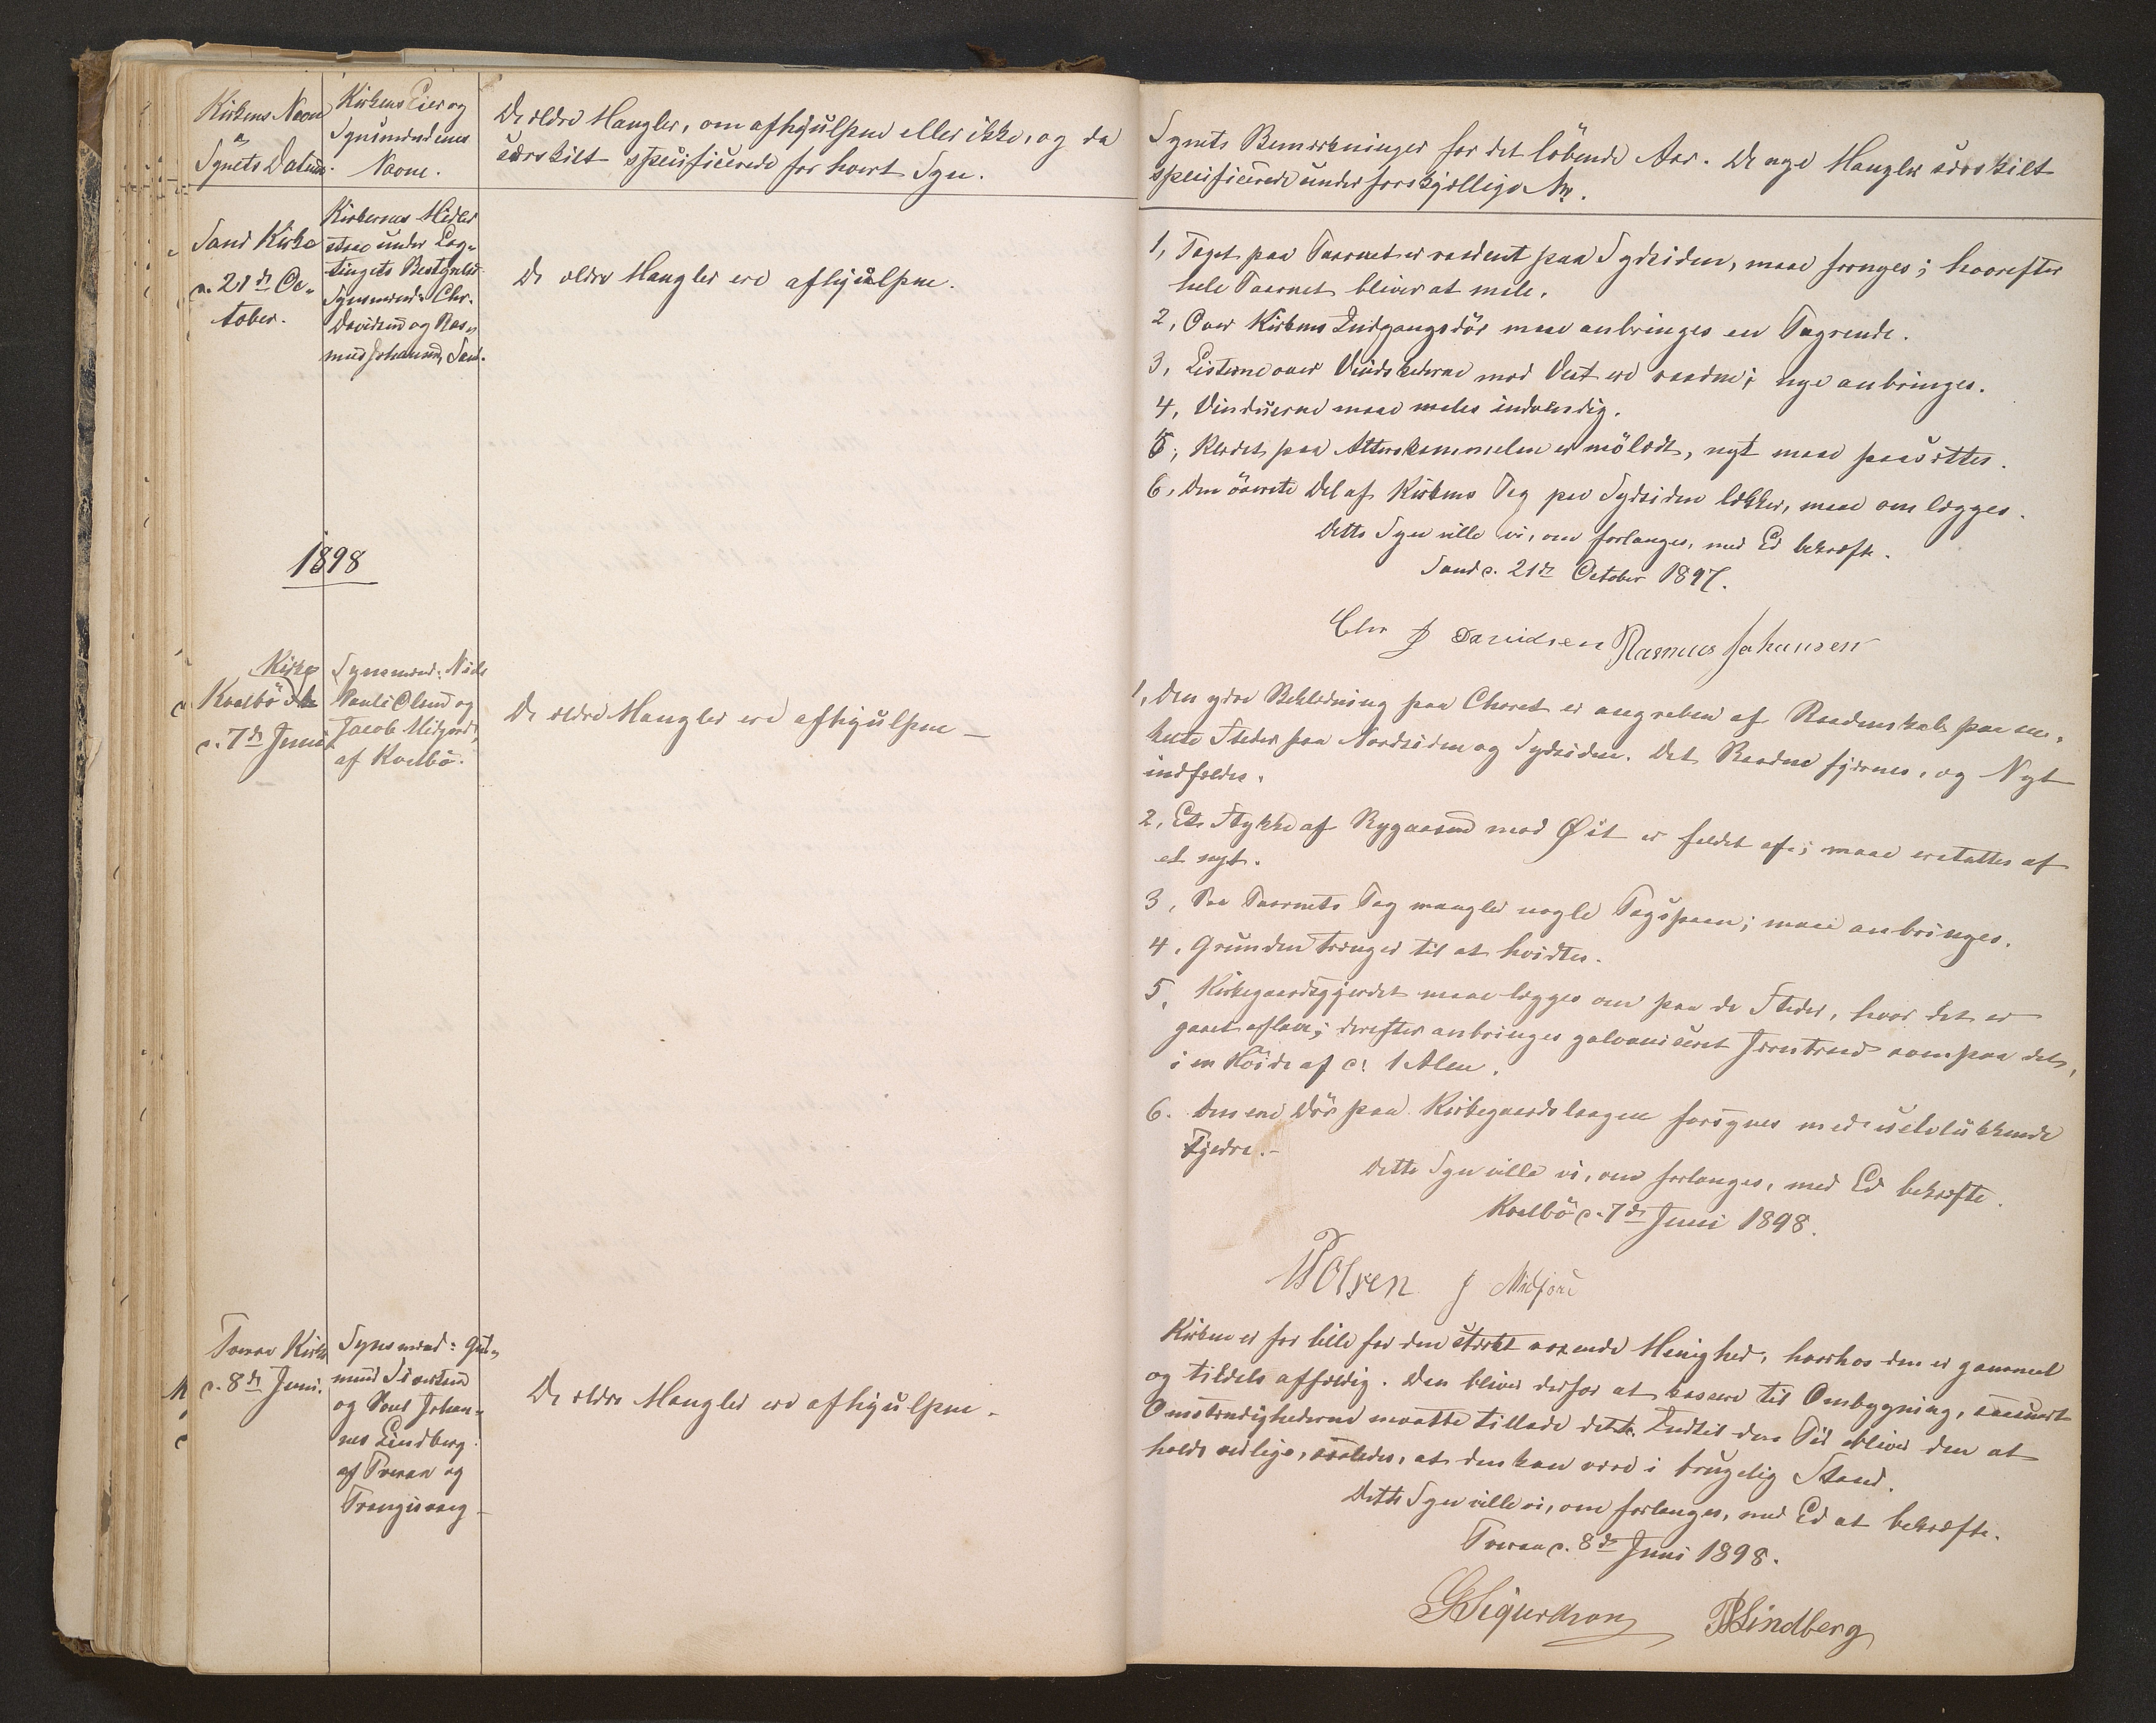 Kirkens Navn
og
Synets Datum.
Kirkens Eier og
Synsmændenes
Navne.
De ældre Mangler, om afhjulpne eller ikke, og da
særskilt specificerede for hvert Syn.
Sand Kirke
d. 21de Oc-
tober.
Kirkernes Midler
staae under Lag-
tingets Bestyrelse
Synsmænd: Chr.
Davidsen og Ras-
mus Johansen, Sand.
De ældre Mangler ere afhjulpne.
1898
Kirke
Kvalbö
d. 7de Juni
Synsmænd: Niels
Pauli Olsen og
Jacob Midjord
af Kvalbö.
De ældre Mangler ere afhjulpne –
Tveraa Kirke
d. 8de Juni.
Synsmænd: Gud-
mund Sivertsen
og Poul Johan-
nes Lindberg
af Tveraa og
Trangisvaag –
De ældre Mangler ere afhjulpne.
Synets Bemærkninger for det löbende Aar. De nye Mangler særskilt
specificerede under forskjællige Nr.
1, Taget paa Taarnet er raadent paa Sydsiden, maae fornyes; hvorefter
hele Taarnet bliver at male.
2, Over Kirkens Indgangsdör maae anbringes en Tagrende.
3, Listerne over Vindskederne mod Vest ere raadne; nye anbringes.
4, Vinduerne maae males indvendig.
5, Klædet paa Alterskammelen er mölædt, nyt maae paasættes.
6, Den överste Del af Kirkens Tag paa Sydsiden lækker, maae omlægges.
Dette Syn ville vi, om forlanges, med Ed bekræfte.
Sand d. 21de October 1897.
Chr J Davidsen Rasmus Johansen
1, Den ydre Beklædning paa Choret er angreben af Raadenskab paa en-
kelte Steder paa Nordsiden og Sydsiden. Det Raadne fjernes, og Nyt
indfældes.
2, Et Stykke af Rygaasen mod Øst er faldet af; maae erstattes af
et nyt.
3, Paa Taarnets Tag mangler nogle Tagspaan; maae anbringes.
4, Grunden trænger til at hvidtes.
5, Kirkegaardsgjerdet maae lægges om paa de Steder, hvor det er
gaaet aflave; derefter anbringes galvaniseret Jerntraad ovenpaa det,
i en Höide af c! 1 Alen.
6. Den ene Dör paa Kirkegaardslaagen forsynes med selvlukkende
Fjedre. –
Dette Syn ville vi, om forlanges, med Ed bekræfte.
Kvalbö d. 7de Juni 1898.
Olsen J Midjord
Kirken er for lille for den stærkt voxende Menighed, hvorhos den er gammel
og tildels affældig. Den bliver derfor at kassere til Ombygning, saasnart
Omstændighederne maatte tillade dette. Indtil den Tid bliver den at
holde vedlige, saaledes, at den kan være i brugelig Stand.
Dette Syn ville vi, om forlanges, med Ed at bekræfte.
Tveraa d. 8de Juni 1898.
GSigurdson PJLindberg